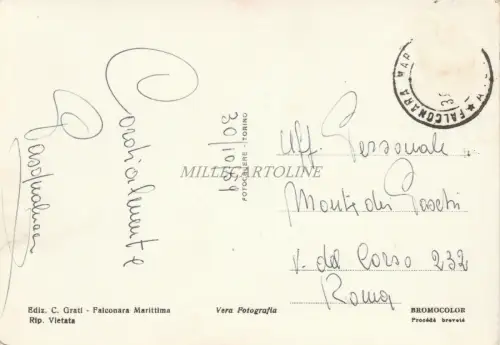 Cordialmente
Pasqualucci
30/10/59
FOTOCELERE - TORINO
MILLECARTOLINE
FALCONARA MAR
Uff. Personale
Monte dei Paschi
V. del Corso 232
Roma
Ediz. C. Grati - Falconara Marittima
Rip. Vietata
Vera Fotografia
BROMOCOLOR
Procédé breveté